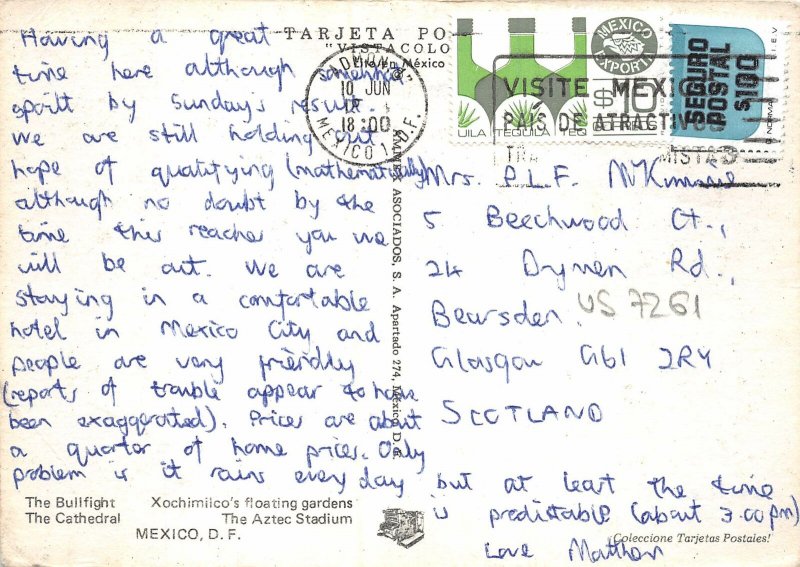 TARJETA PO
"VISTACOLO
en México
ADMON
10 JUN
18:00
MEXICO 1, D.F.
MEXICO
EXPORTA
$10
TEQUILA
SEGURO
POSTAL
$100
VISITE MEXICO
PAIS DE ATRACTIVOS
Having a great
time here although somewhat
spoilt by Sunday's result.
We are still holding out
hope of qualifying (mathematically)
although no doubt by the
time this reaches you we
will be out. We are
staying in a comfortable
hotel in Mexico City and
people are very friendly
(reports of trouble appear to have
been exaggerated). Prices are about
a quarter of home prices. Only
problem is it rains every day but at least the time
is predictable (about 3.00pm)
Love Matthew
AMMEX ASOCIADOS, S. A. Apartado 274, México, D. F.
Mrs. P.L.F. McKimmie
5 Beechwood Ct.,
24 Drymen Rd.,
Bearsden.
US 7261
Glasgow G61 2RY
SCOTLAND
The Bullfight Xochimilco's floating gardens
The Cathedral The Aztec Stadium
MEXICO, D. F.
¡Coleccione Tarjetas Postales!